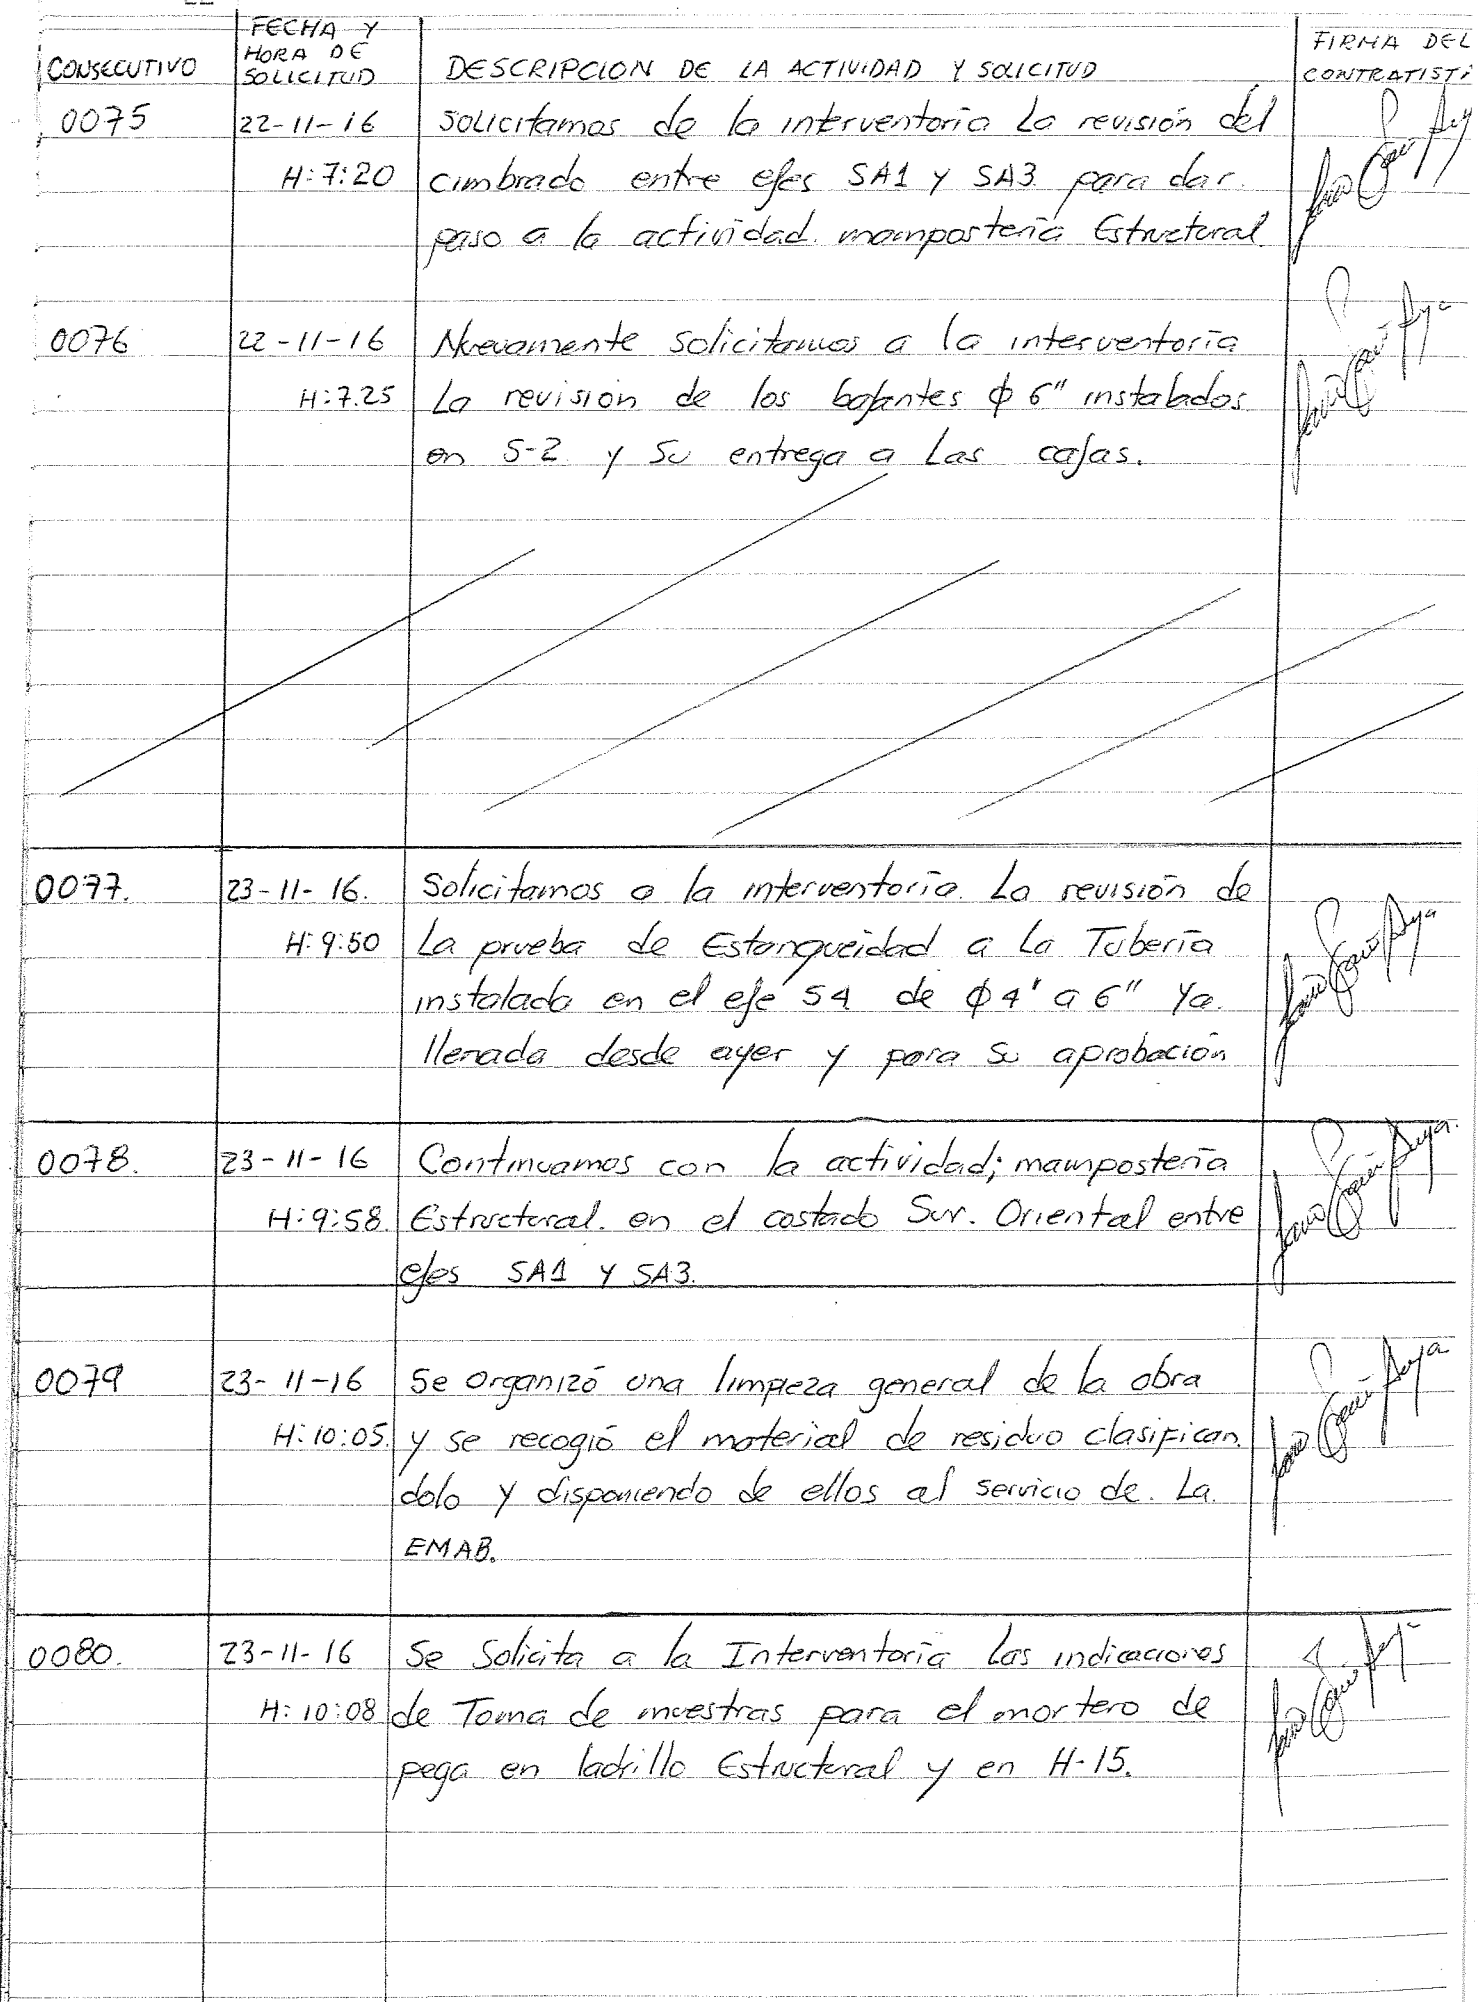 CONSECUTIVO
FECHA Y
HORA DE
SOLICITUD
DESCRIPCION DE LA ACTIVIDAD Y SOLICITUD
FIRMA DEL
CONTRATISTA
0075
22-11-16
H:7:20
Solicitamos de la interventoria La revisión del
cimbrado entre ejes SA1 y SA3 para dar
paso a la actividad. mamposteria Estructural.
0076
22-11-16
H:7.25
Nuevamente Solicitamos a la interventoria
La revision de los bajantes ϕ 6" instalados
en S-2 y Su entrega a Las cajas.
0077.
23-11-16.
H:9:50
Solicitamos a la interventoria. La revisión de
La prueba de Estanqueidad a La Tuberia
instalada en el eje S4 de ϕ 4' a 6" Ya.
llenada desde ayer y para su aprobación
0078.
23-11-16
H:9:58.
Continuamos con la actividad; mamposteria
Estructural. en el costado Sur. Oriental entre
ejes SA1 y SA3.
0079
23-11-16
H:10:05.
Se organizó una limpieza general de la obra
y se recogió el material de residuo clasifican
dolo y disponiendo de ellos al servicio de. La.
EMAB.
0080.
23-11-16
H:10:08
Se Solicita a la Interventoria Las indicaciones
de Toma de muestras para el mortero de
pega en ladrillo Estructural y en H-15.